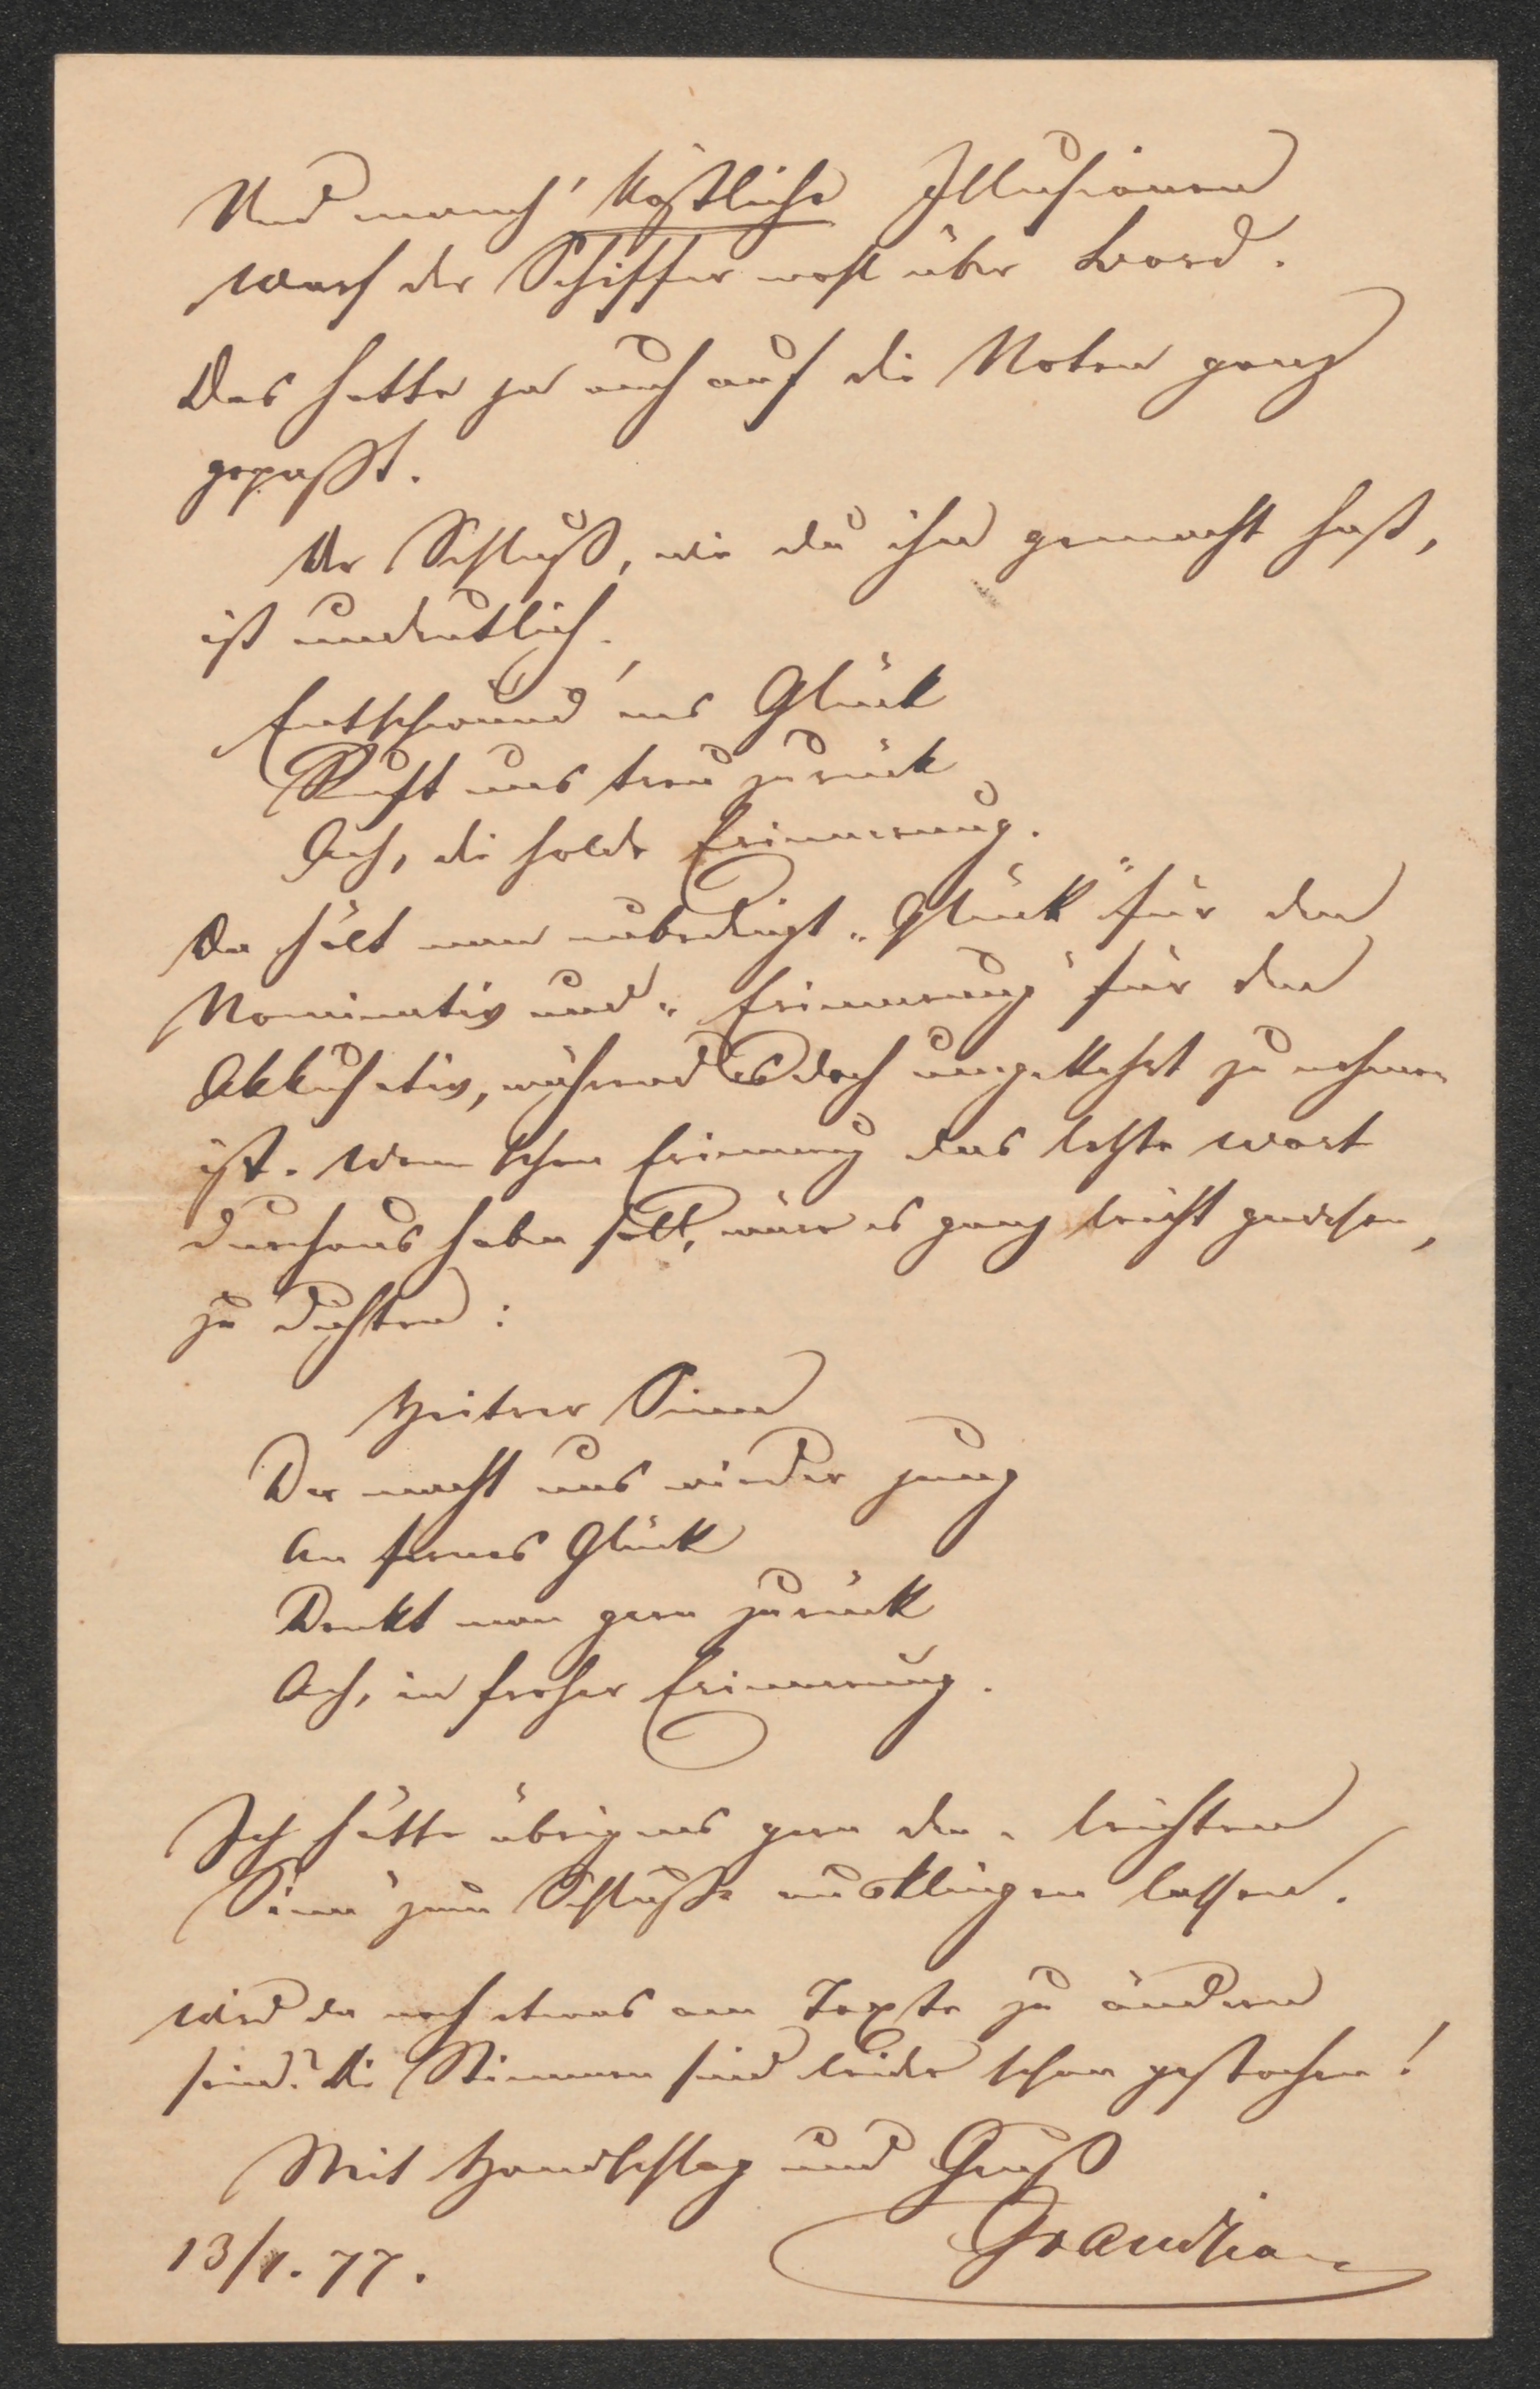 Und manch' köstliche Illusionen
warf der Schiffer wohl über Bord.
Das hätte ja auch auf die Noten ganz
gepaßt.
Der Schluß, wie du ihn gemacht hast,
ist undeutlich.
Entschwund'nes Glück
Ruft uns treu zurück
Ach, die holde Erinnerung.
Da hält man unbedingt „Glück" für den
Nominativ und „Erinnerung" für den
Akkusativ, während es doch umgekehrt zu nehmen
ist. Wenn schon Erinnerung das letzte Wort
durchaus haben soll, wäre es ganz leicht gewesen,
zu dichten:
Heitrer Sinn
Der macht uns wieder jung
An fernes Glück
Denkt man gern zurück
Ach, in froher Erinnerung.
Ich hätte übrigens gern den „leichten
Sinn" zum Schlusse ausklingen lassen.
Wird da noch etwas am Texte zu ändern
sein? Die Stimmen sind leider schon gestochen!
Mit Handschlag und Gruß
Grandjean
13/1. 77.